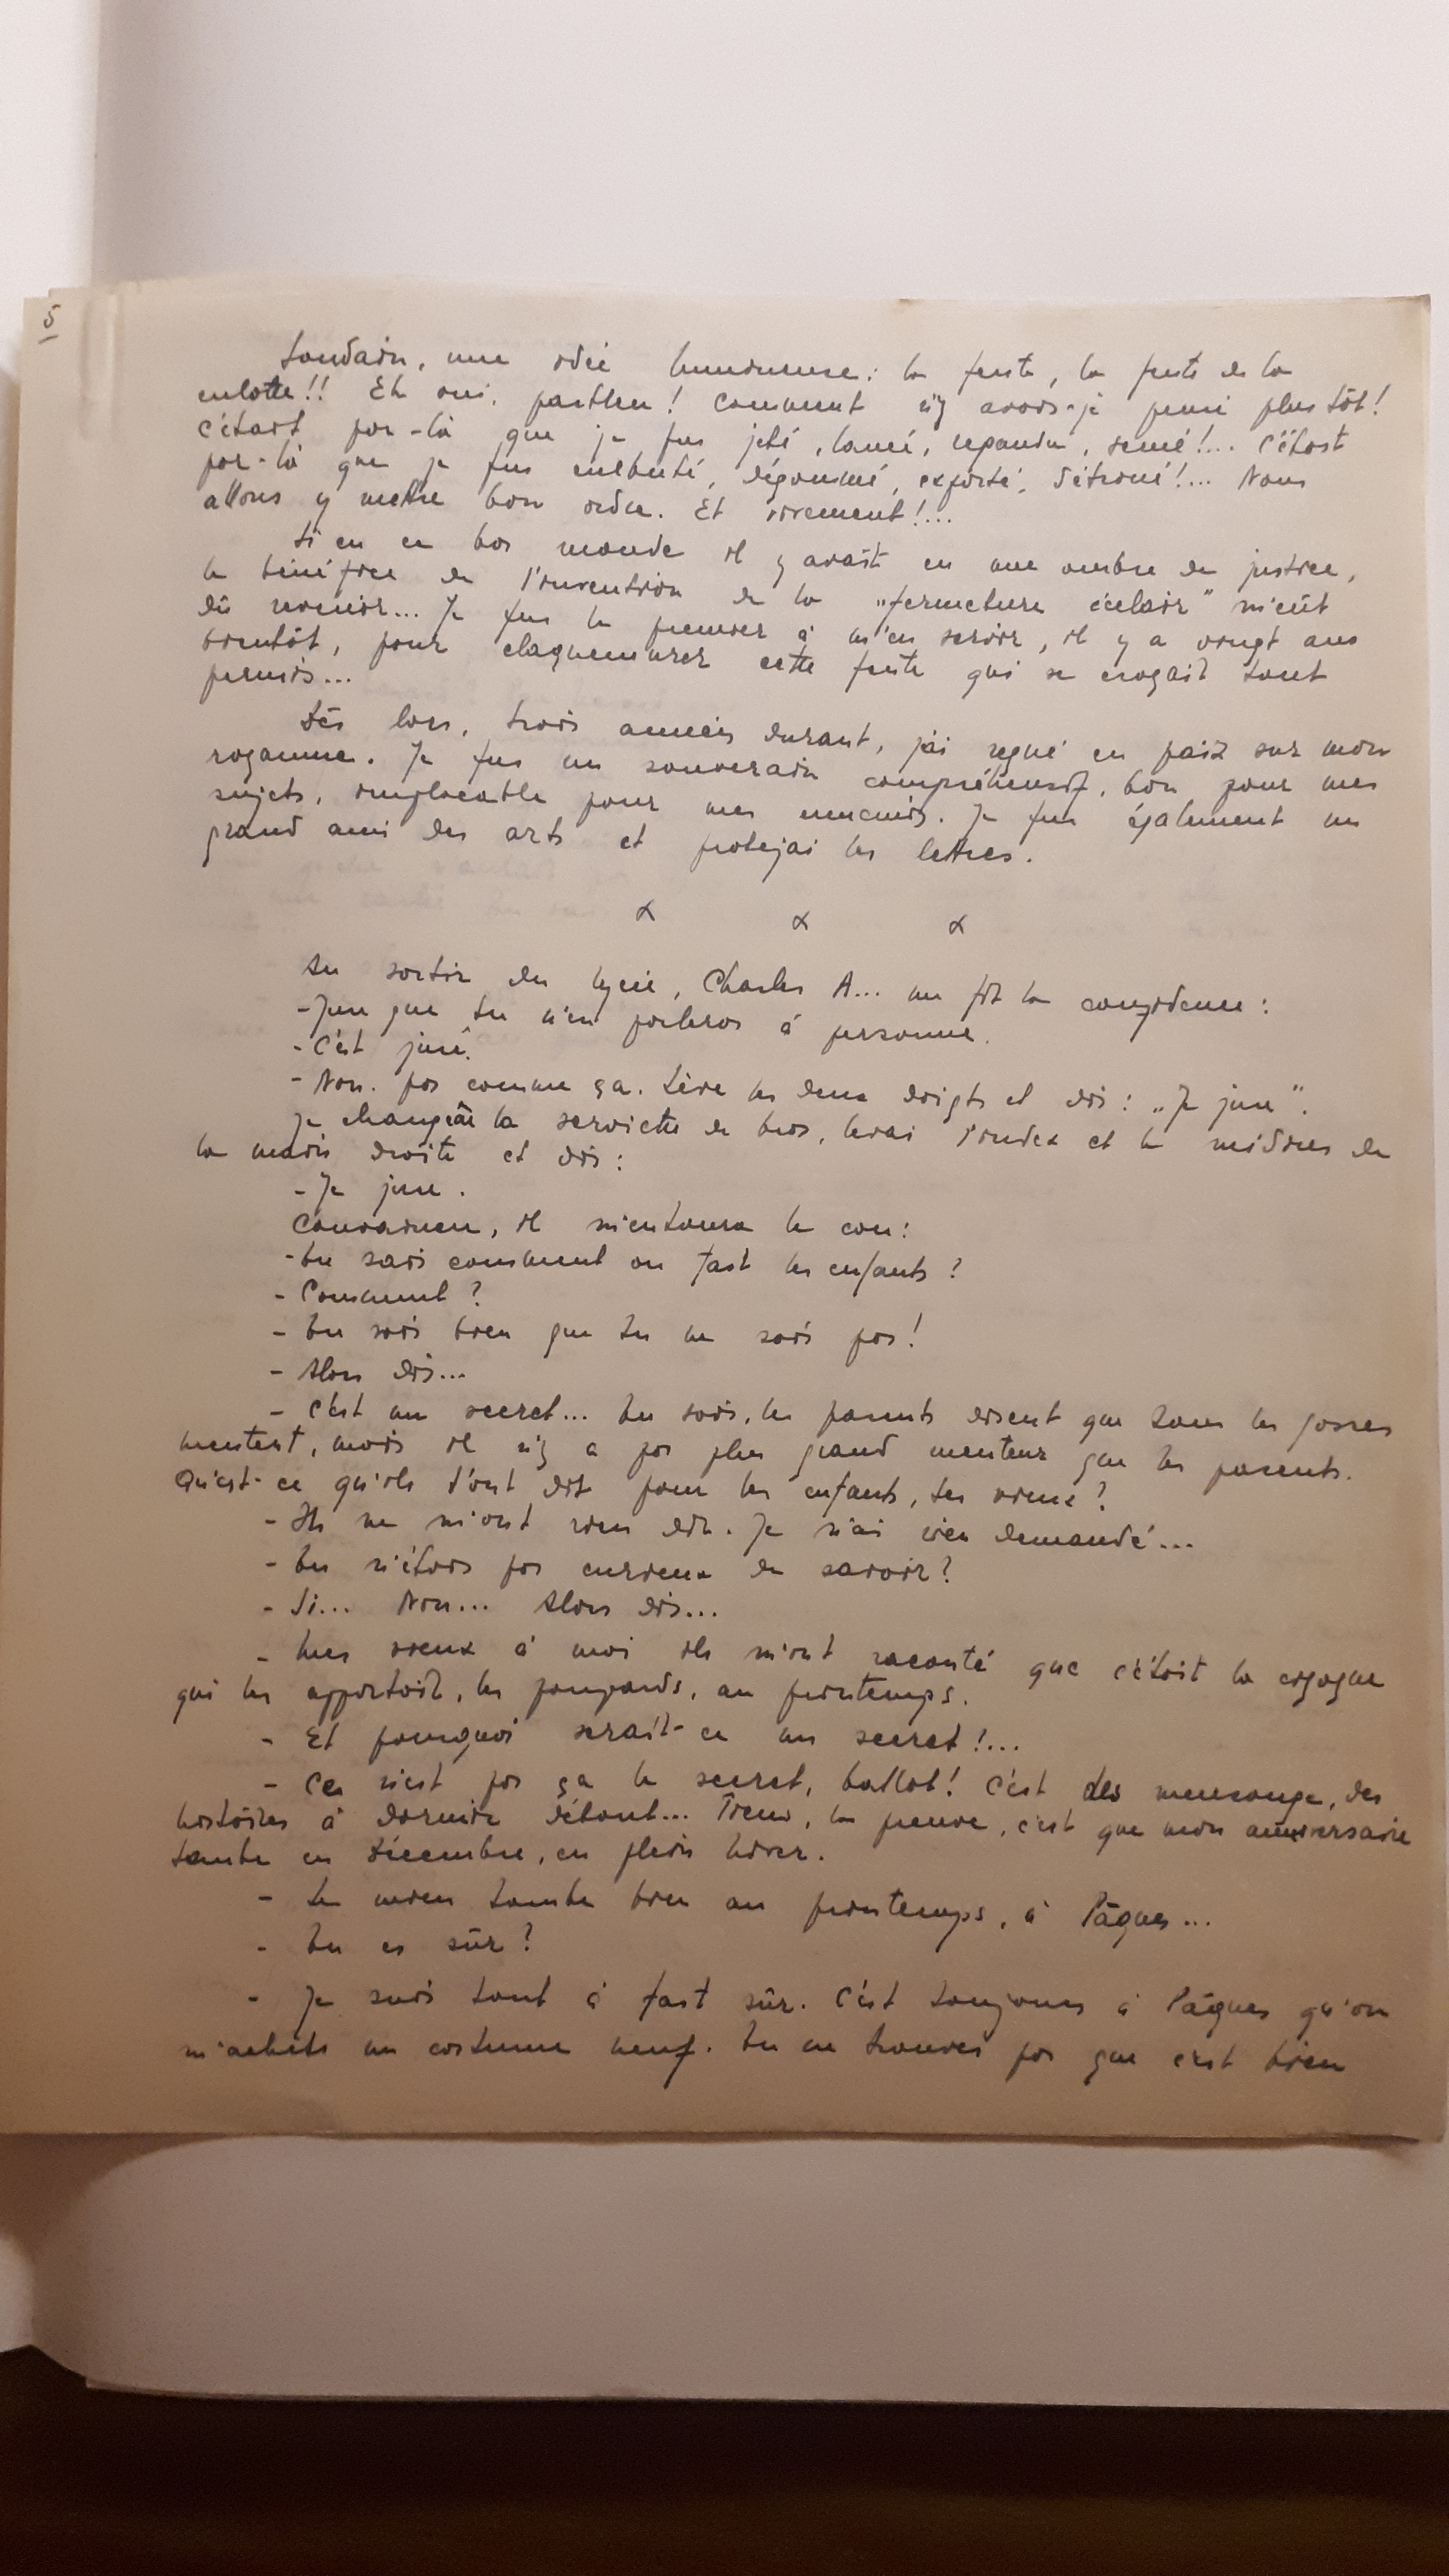 5
Soudain, une idée lumineuse : la fente, la fente de la
culotte !! Eh oui, parbleu ! Comment n'y avais-je pensé plus tôt !
C'était par-là que je fus jeté, lancé, repandu, semé !... C'était
par-là que je fus culbuté, dégommé, exporté, détroné !... Nous
allons y mettre bon ordre. Et vivement !...
Si en ce bas monde il y avait eu une ombre de justice,
le bénéfice de l'invention de la „fermeture éclair" m'eût
dû revenir... Je fus le premier à m'en servir, il y a vingt ans
bientôt, pour claquemurer cette fente qui se croyait tout
permis...
Dès lors, trois années durant, j'ai regné en paix sur mon
royaume. Je fus un souverain compréhensif, bon pour mes
sujets, implacable pour mes ennemis. Je fus également un
grand ami des arts et protejai les lettres.
x x x
Au sortir du lycée, Charles A... me fit la confidence :
- Jure que tu n'en parleras à personne.
- C'est juré.
- Non. pas comme ça. Lève les deux doigts et dis : „Je jure".
Je changeai la serviette de bras, levai l'index et le médius de
la main droite et dis :
- Je jure.
Convaincu, il m'entoura le cou :
- Tu sais comment on fait les enfants ?
- Comment ?
- Tu sais bien que tu ne sais pas !
- Alors dis...
- C'est un secret... Tu sais, les parents disent que tous les gosses
mentent, mais il n'y a pas plus grand menteur que les parents.
Qu'est-ce qu'ils t'ont dit pour les enfants, tes vieux ?
- Ils ne m'ont rien dit. Je n'ai rien demandé...
- Tu n'étais pas curieux de savoir ?
- Si... Non... Alors dis...
- Mes vieux à moi ils m'ont raconté que c'était la cigogne
qui les apportait, les poupards, au printemps.
- Et pourquoi serait-ce un secret !...
- Ce n'est pas ça le secret, ballot ! C'est des mensonge, des
histoires à dormir débout... Tiens, la preuve, c'est que mon anniversaire
tombe en décembre, en plein hiver.
- Le mien tombe bien au printemps, à Pâques...
- Tu es sûr ?
- Je suis tout à fait sûr. C'est toujours à Pâques qu'on
m'achète un costume neuf. Tu ne trouves pas que c'est bien